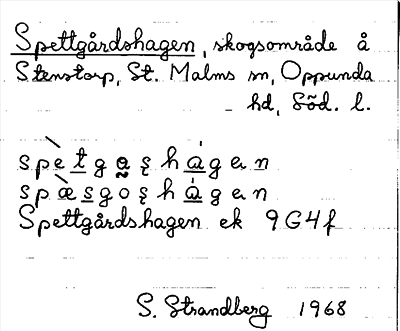 Spettgårdshagen, skogsområde å
Stenstorp, St. Malms sn, Oppunda
hd, Söd. l.
spètgo̰ş hágan
spæ̀sgoş hágan
Spettgårdshagen ek 9G4f
S. Strandberg 1968